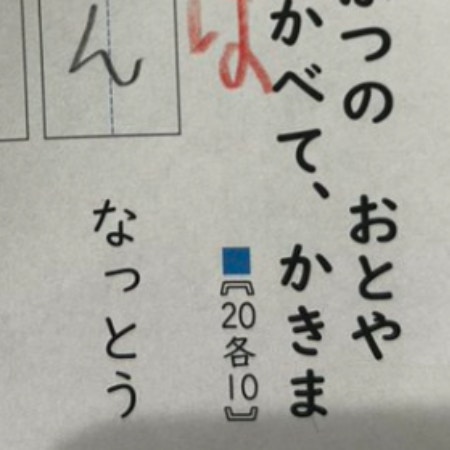 つの おとや
かべて、かきま
は
■〖20各10〗
ん
なっとう